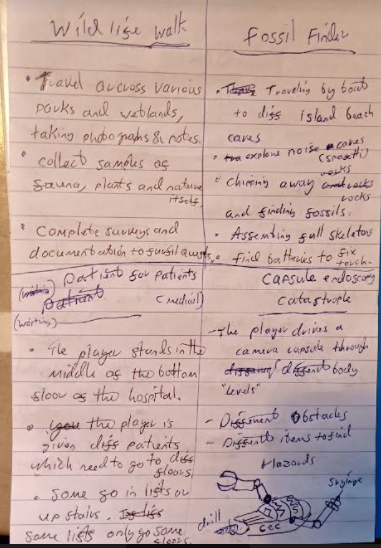 Wildlife walk
• Travel across various
parks and wetlands,
taking photographs & notes.
• collect samples of
fauna, plants and nature
itself.
• Complete surveys and
documentation to fulfil quests.
Fossil Finder
• Traveling by boat
to diff island beach
caves
• explore noise caves
(smooth)
• Chipping away rocks
and finding fossils.
• Assembling full skeletons
• find batteries to fix
torch.
(working) patient for patients
patient (medical)
(working)
• The player stands in the
middle of the bottom
floor of the hospital.
• the player is
given diff patients
which need to go to diff
floors.
• Some go in lifts or
up stairs.
some lifts only go some
floors.
Capsule endoscopy
Catastrophe
- The player drives a
camera capsule through
different body
"levels"
- Different obstacles
- Different items to find
Hazards
Syringe
drill